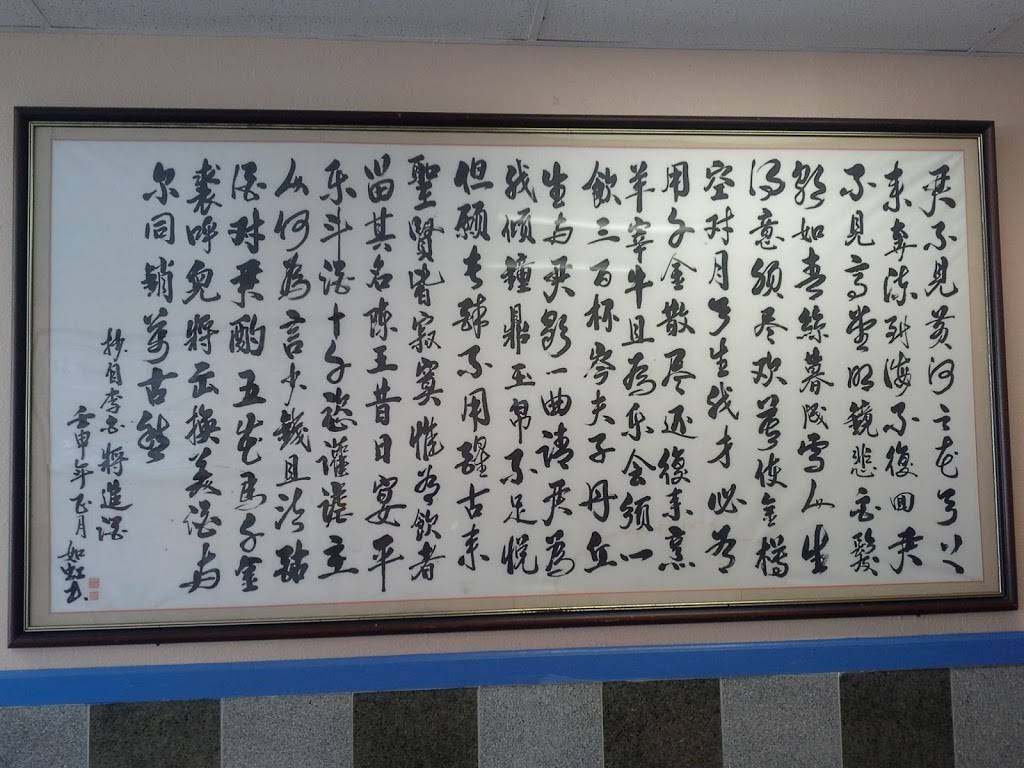 君不見黄河之水天上
来奔流到海不復回君
不見高堂明鏡悲白髮
朝如青絲暮成雪人生
得意须尽欢莫使金樽
空对月天生我才必有
用千金散尽还復来烹
羊宰牛且為乐会须一
飲三百杯岑夫子丹丘
生与君歌一曲請君為
我倾鐘鼎玉帛不足悦
但願长醉不用醒古来
聖賢皆寂寞惟有飲者
留其名陳王昔日宴平
乐斗酒十千恣讙謔主
人何為言少錢且沽
酒对君酌五花馬千金
裘呼兒將出换美酒与
尔同銷萬古愁
抄自李白將進酒
壬申年正月 如虹书